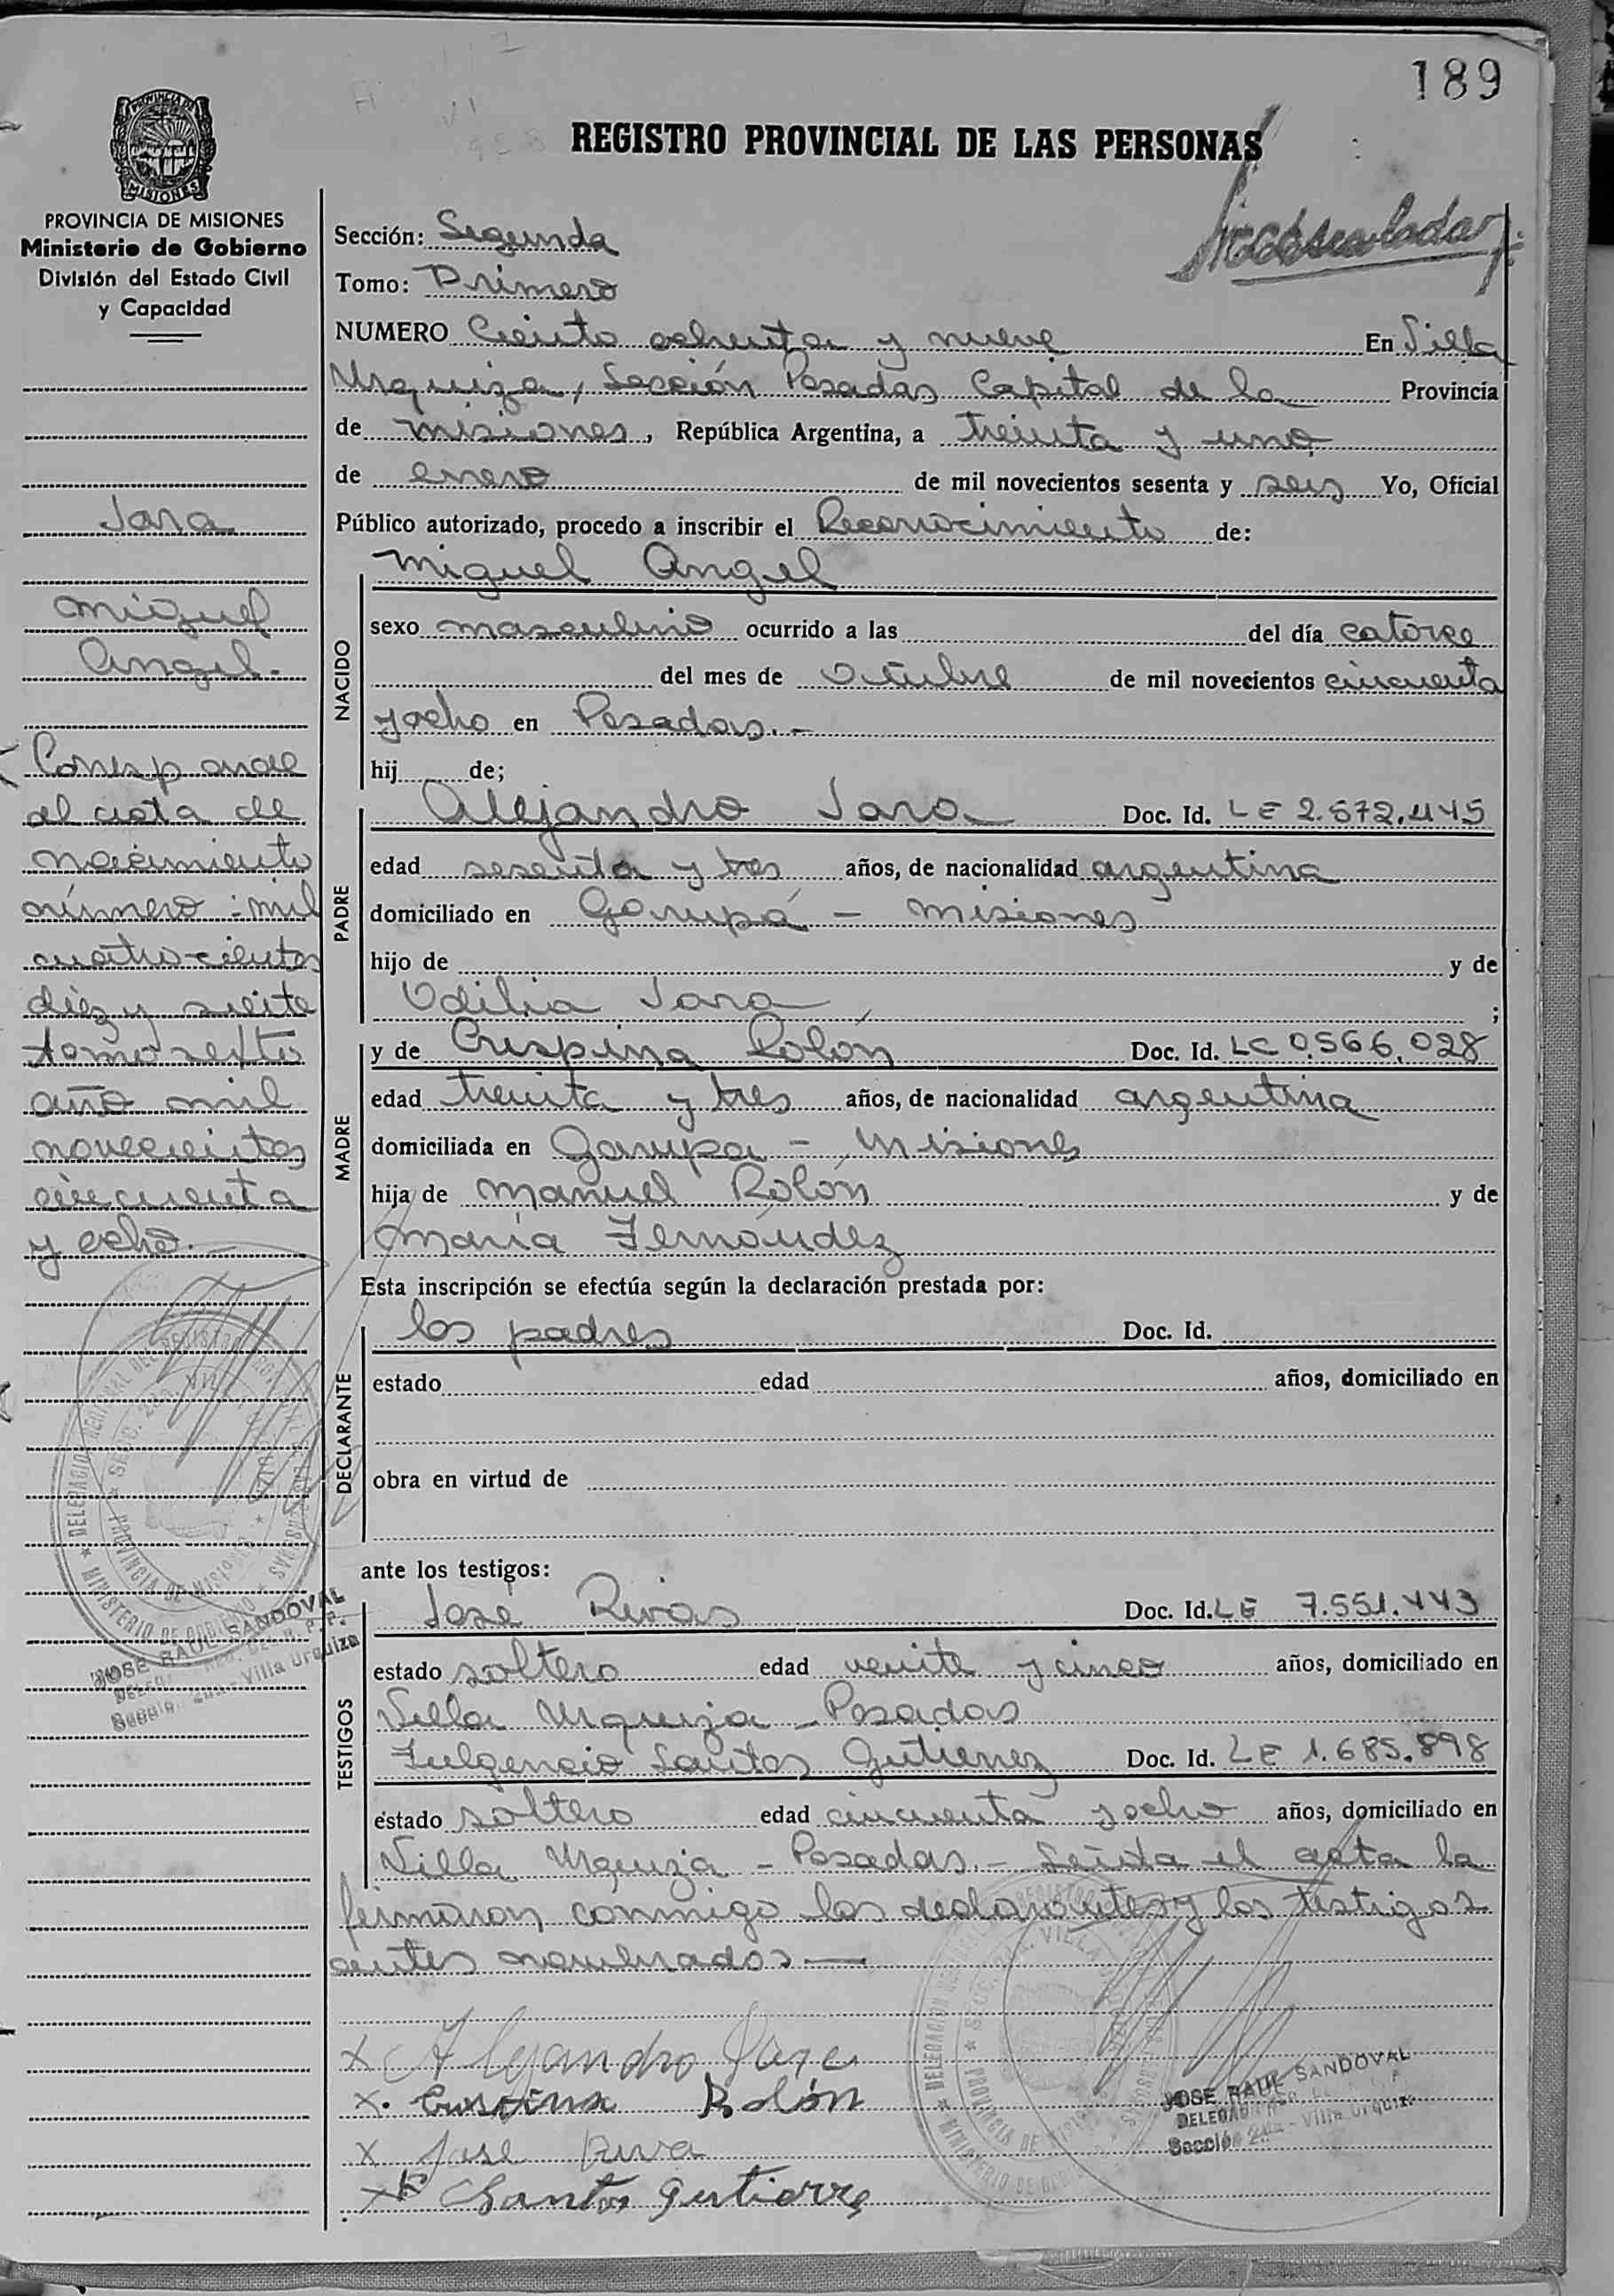 189
REGISTRO PROVINCIAL DE LAS PERSONAS
PROVINCIA DE
MISIONES
PROVINCIA DE MISIONES
Ministerio de Gobierno
División del Estado Civil
y Capacidad
Jara
Miguel
Angel.-
Corresponde
al acta de
nacimiento
número: mil
cuatrocientos
diez y siete
tomo sexto
año mil
novecientos
cincuenta
y ocho.-
JOSE RAUL SANDOVAL
Sección 2da - Villa Urquiza
Sección: Segunda
Tomo: Primero
NUMERO Ciento ochenta y nueve En Villa
Urquiza, Sección Posadas Capital de la Provincia
de Misiones, República Argentina, a treinta y uno
de enero de mil novecientos sesenta y seis Yo, Oficial
Público autorizado, procedo a inscribir el Reconocimiento de:
Miguel Angel
NACIDO
sexo masculino ocurrido a las del día catorce
del mes de Octubre de mil novecientos cincuenta
y ocho en Posadas.-
hij de;
PADRE
Alejandro Jara Doc. Id. LE 2.572.445
edad sesenta y tres años, de nacionalidad argentina
domiciliado en Garupá - Misiones
hijo de y de
Odilia Jara ;
MADRE
y de Crispina Rolón Doc. Id. LC 0.566.028
edad treinta y tres años, de nacionalidad argentina
domiciliada en Garupa - Misiones
hija de Manuel Rolón y de
María Fernández
Esta inscripción se efectúa según la declaración prestada por:
DECLARANTE
los padres Doc. Id.
estado edad años, domiciliado en
obra en virtud de
ante los testigos:
TESTIGOS
José Rivas Doc. Id. LE 7.551.443
estado soltero edad veinte y cinco años, domiciliado en
Villa Urquiza - Posadas
Fulgencio Santos Gutierrez Doc. Id. LE 1.685.898
estado soltero edad cincuenta y ocho años, domiciliado en
Villa Urquiza - Posadas.- Leída el acta la
firmaron conmigo los declarantes y los testigos
antes nombrados —
x Alejandro Jara
x. Crispina Rolón
x Jose Riva
x Santos Gutierre
JOSE RAUL SANDOVAL
Sección 2da - Villa Urquiza